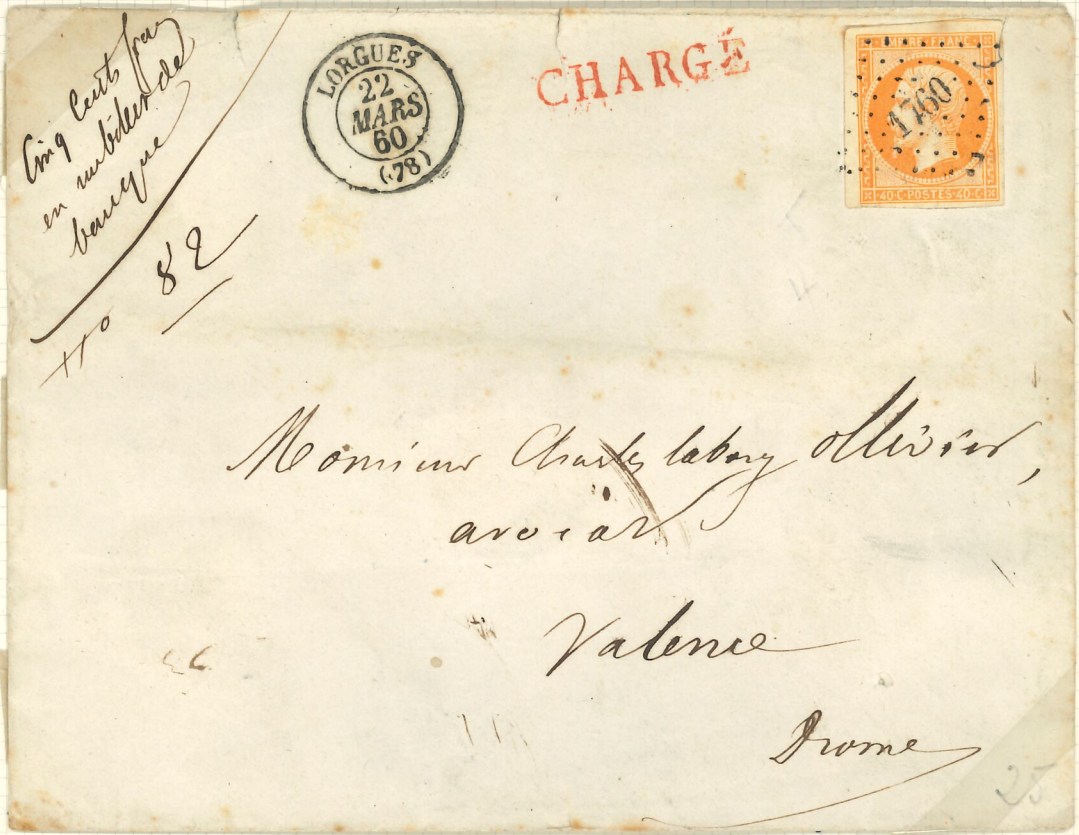 Cinq Cents fran
en un billet de
banque
N° 82
LORGUES
22
MARS
60
(78)
CHARGÉ
EMPIRE FRANC
1760
40·C·POSTES·40·C
Monsieur Charles labory Ollivier,
avocat
Valence
Drome
25